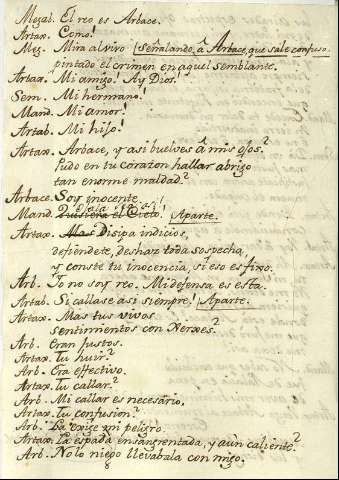 Megab. El reo es Arbace.
Artax. Como!
Meg. Mira al vivo señalando â Arbace, que sale confuso.
pintado el crimen en aquel semblante.
Artax. Mi amigo! Ay Dios!
Sem. Mi hermano!
Mand. Mi amor!
Artab. Mi hijo!
Artax. Arbace, y asi buelves â mis ojos?
Pudo en tu corazon hallar abrigo
tan enorme maldad?
Arbace. Soy inocente.
Mand. Quisiera el Cielo! Aparte.
Artax. Mas Disipa indicios,
defiéndete, deshaz toda sospecha,
y conste tu inocencia, si eso es fixo.
Arb. Yo no soy reo. Mi defensa es esta.
Artab. Si callase asi siempre! Aparte.
Artax. Mas tus vivos
sentimientos con Xerxes?
Arb. Eran justos.
Artax. Tu huir?
Arb. Era efectivo.
Artax. Tu callar?
Arb. Mi callar es necesario.
Artax. Tu confusion?
Arb. La exige mi peligro.
Artax. La espada ensangrentada, y aun caliente?
Arb. No lo niego llevabala con migo.
8